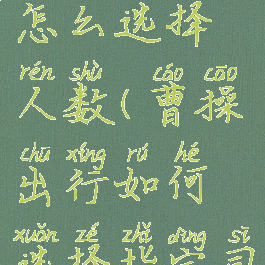 怎么选择
rén shù cáo cāo
人数(曹操
chū xíng rú hé
出行如何
xuǎn zé zhǐ dìng sī
选择指定司